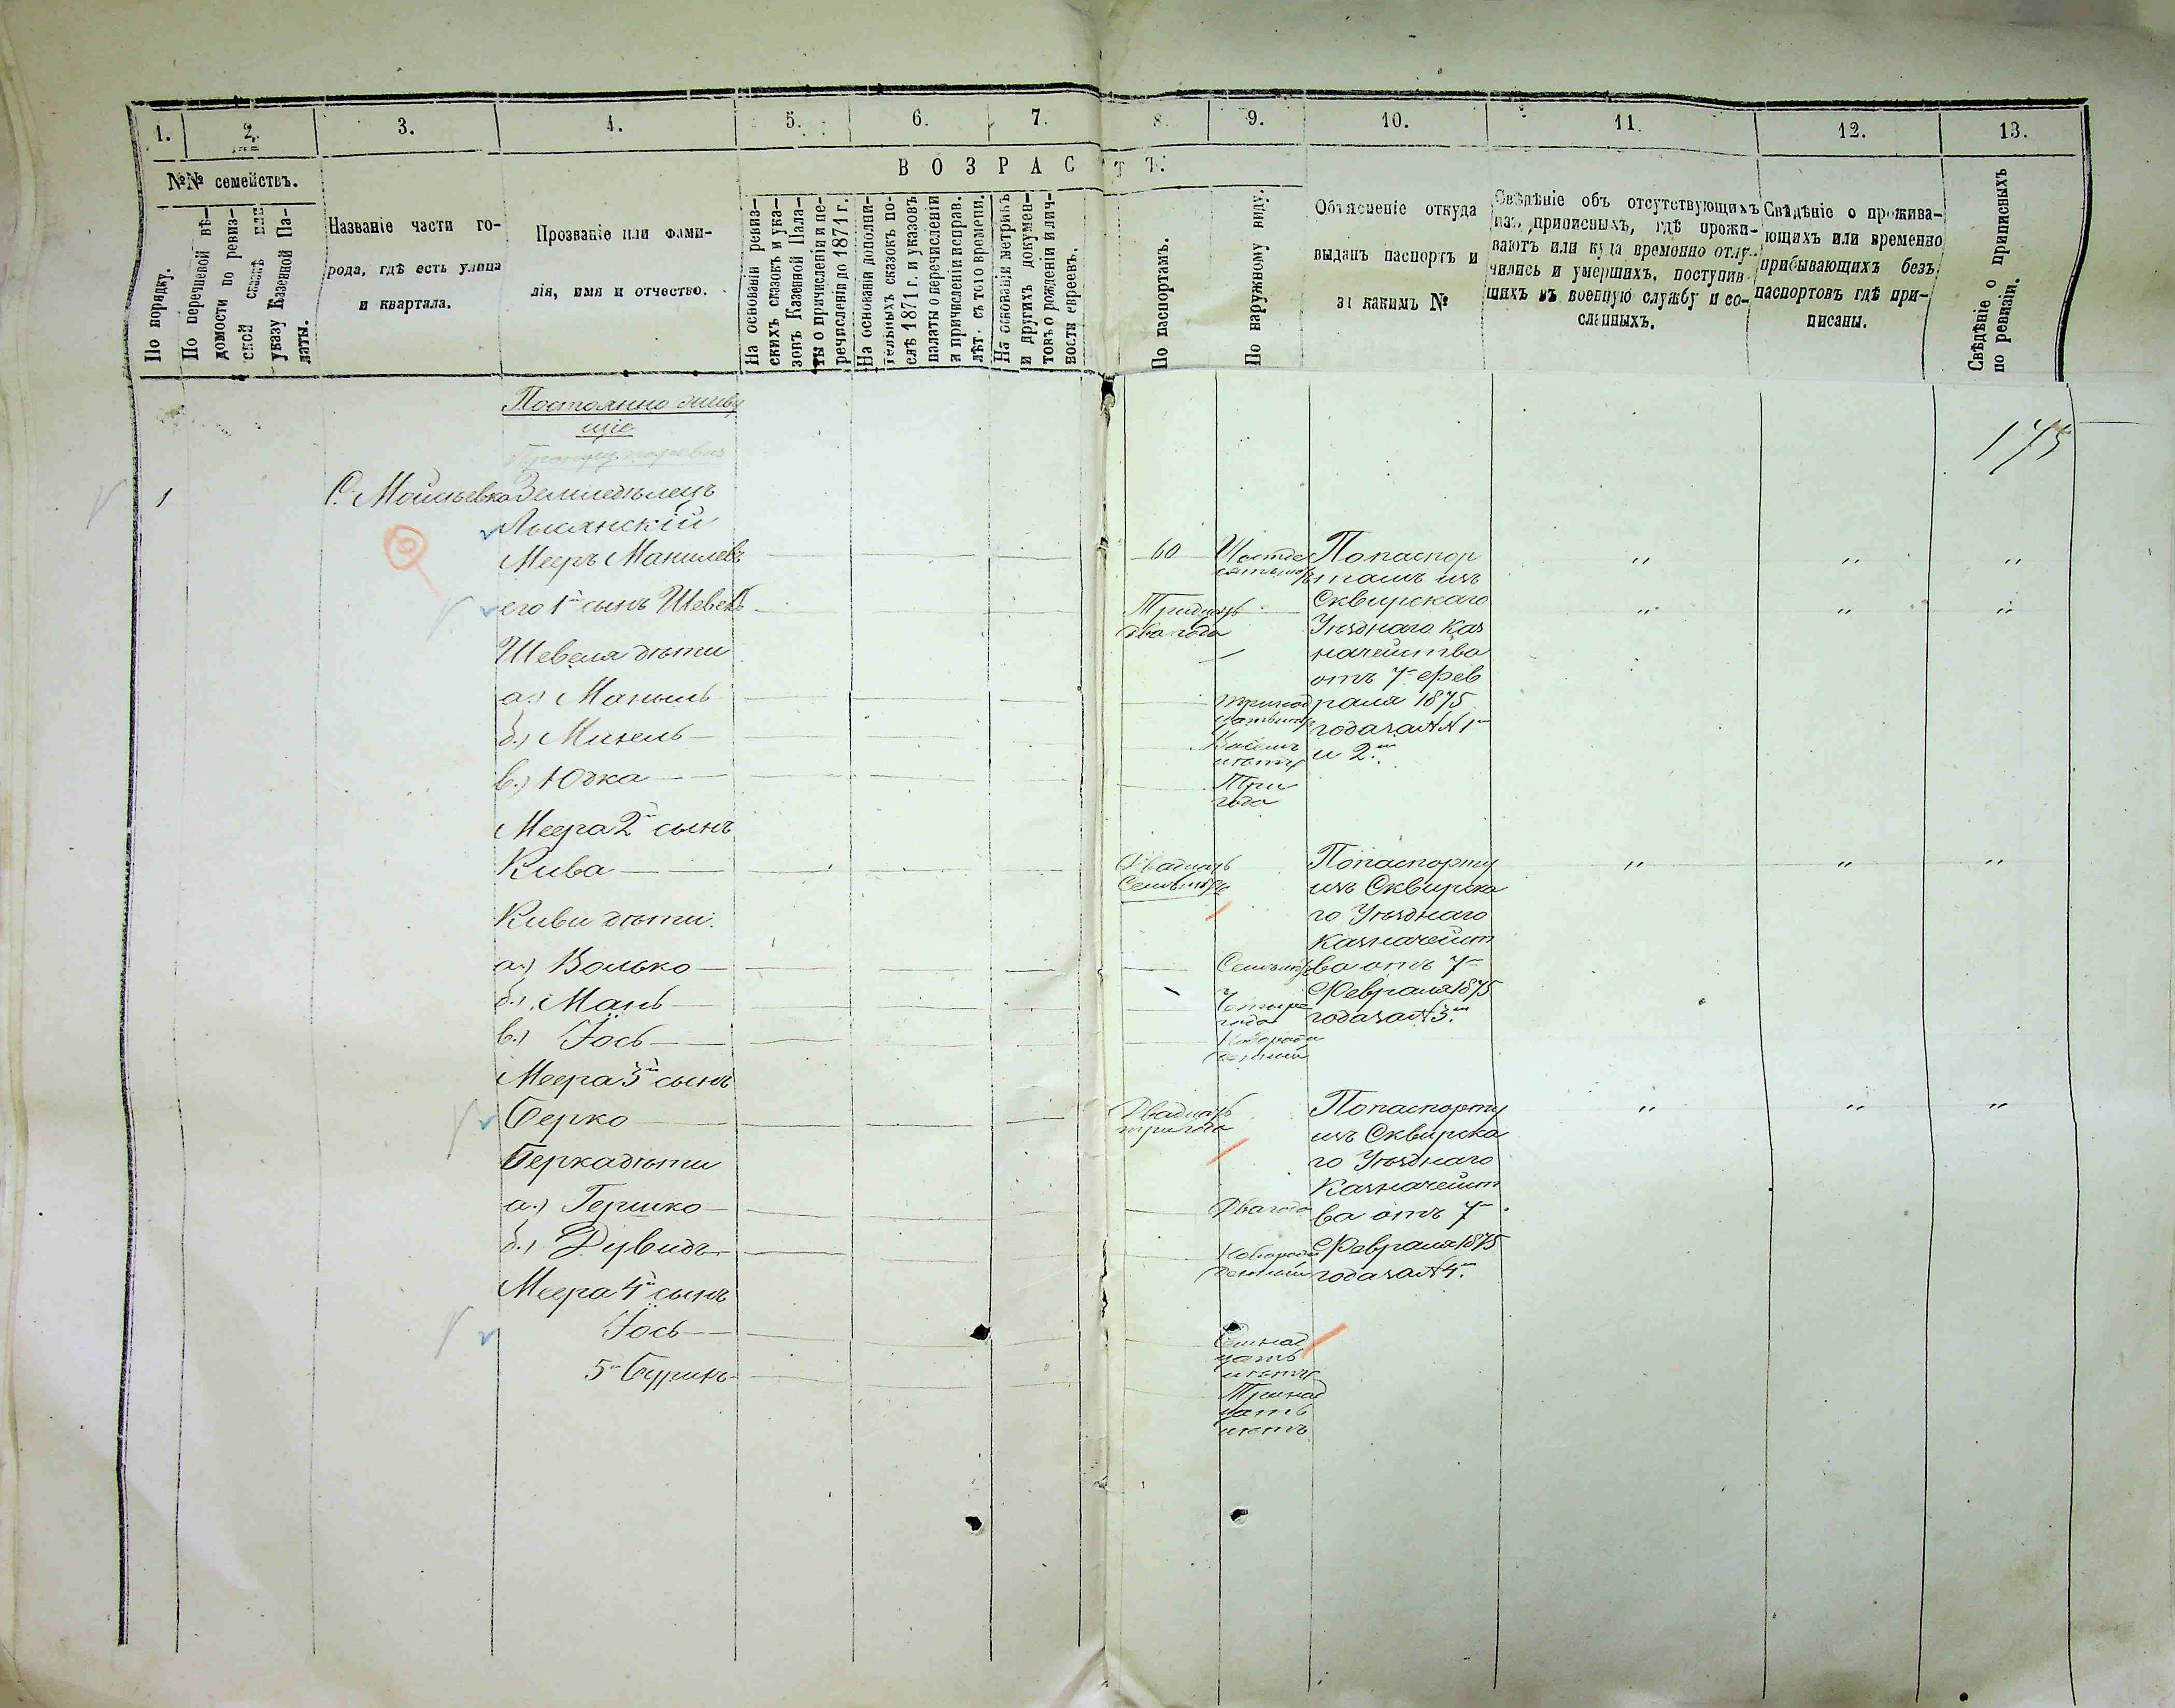 1. 2. 3. 4. 5. 6. 7. 8. 9. 10. 11. 12. 13.
№№ семействъ.
По порядку.
По перечневой вѣ-
домости по ревиз-
ской сказкѣ или
указу Казенной Па-
латы.
Названіе части го-
рода, гдѣ есть улица
и квартала.
Прозваніе или фами-
лія, имя и отчество.
ВОЗРАСТЪ.
На основаніи ревиз-
скихъ сказокъ и ука-
зовъ Казенной Пала-
ты о причисленіи и пе-
речисленіи до 1871 г.
На основаніи дополни-
тельныхъ сказокъ по-
слѣ 1871 г. и указовъ
палаты о перечисленіи
и причисленіи исправ.
лѣт. съ того времени.
На основаніи метрикъ
и другихъ докумен-
товъ о рожденіи и лич-
ности евреевъ.
По паспортамъ.
По наружному виду.
Объясненіе откуда
выданъ паспортъ и
за какимъ №
Свѣдѣніе объ отсутствующихъ
изъ приписныхъ, гдѣ прожи-
ваютъ или куда временно отлу-
чились и умершихъ, поступив-
шихъ въ военную службу и со-
сланныхъ.
Свѣдѣніе о прожива-
ющихъ или временно
прибывающихъ безъ
паспортовъ гдѣ при-
писаны.
Свѣдѣніе о приписныхъ
по ревизіи.
Постоянно живу
щіе
175
1 С. Мойсѣевка Земледѣлецъ
Лысянскій
Мееръ Манилевъ 60 Шестьде
сятъ лѣтъ
По паспор
тамъ изъ
Сквирскаго
Уѣзднаго Каз
начейства
отъ 7 Фев
раля 1875
года за №№ 1
и 2.
его 1й сынъ Шевель Тридцать
два года
Шевеля дѣти
а.) Маниль Тринад
цать лѣтъ
б.) Михель Восемь
лѣтъ
в.) Юдка Три
года
Меера 2й сынъ
Кива Двадцать
Семь лѣтъ
По паспорту
изъ Сквирска
го Уѣзднаго
Казначейст
ва отъ 7
Февраля 1875
года за № 3.
Киви дѣти.
а.) Волько Семь лѣтъ
б.) Мань Четыре
года
в.) Іось Новорож
денный
Меера 3й сынъ
Берко Двадцать
три года
По паспорту
изъ Сквирска
го Уѣзднаго
Казначейст
ва отъ 7
Февраля 1875
года за № 4.
Берка дѣти
а.) Гершко Два года
б.) Дувидъ Новорож
денный
Меера 4й сынъ
Іось Семнад
цать
лѣтъ
5й Тринад
цать
лѣтъ